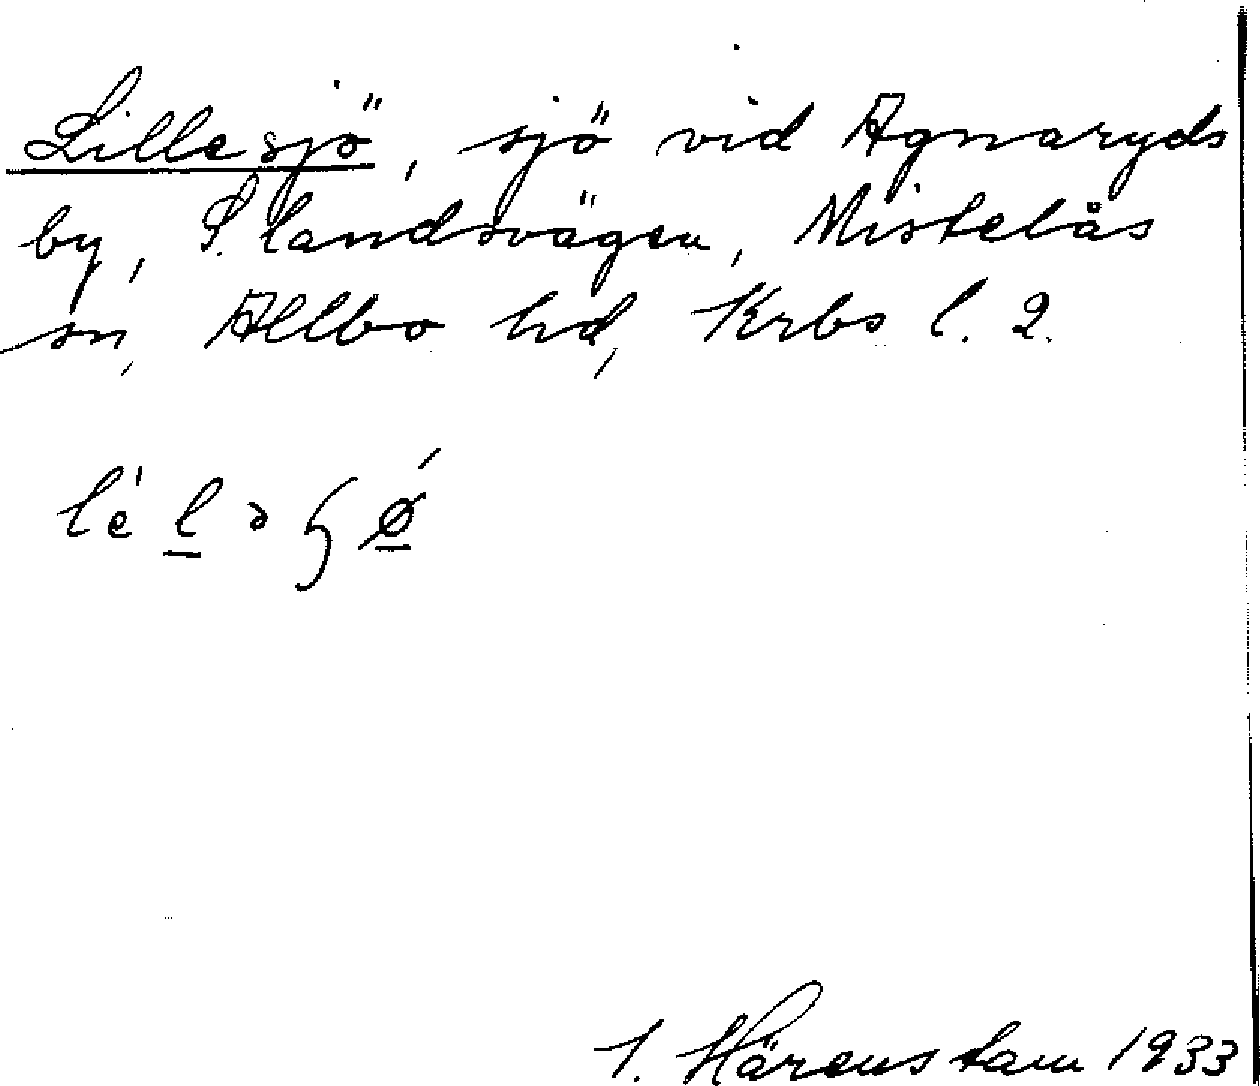 Lillesjö, sjö vid Agnaryds
by, S. landsvägen, Mistelås
sn, Allbo hd, Krbs l. 2.
lé'l̲əɧǿ̲
I. Härenstam 1933